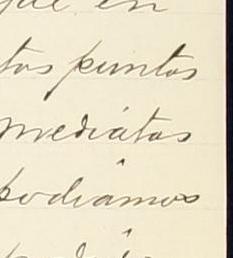 que en
tos puntos
mediátas
podiamos